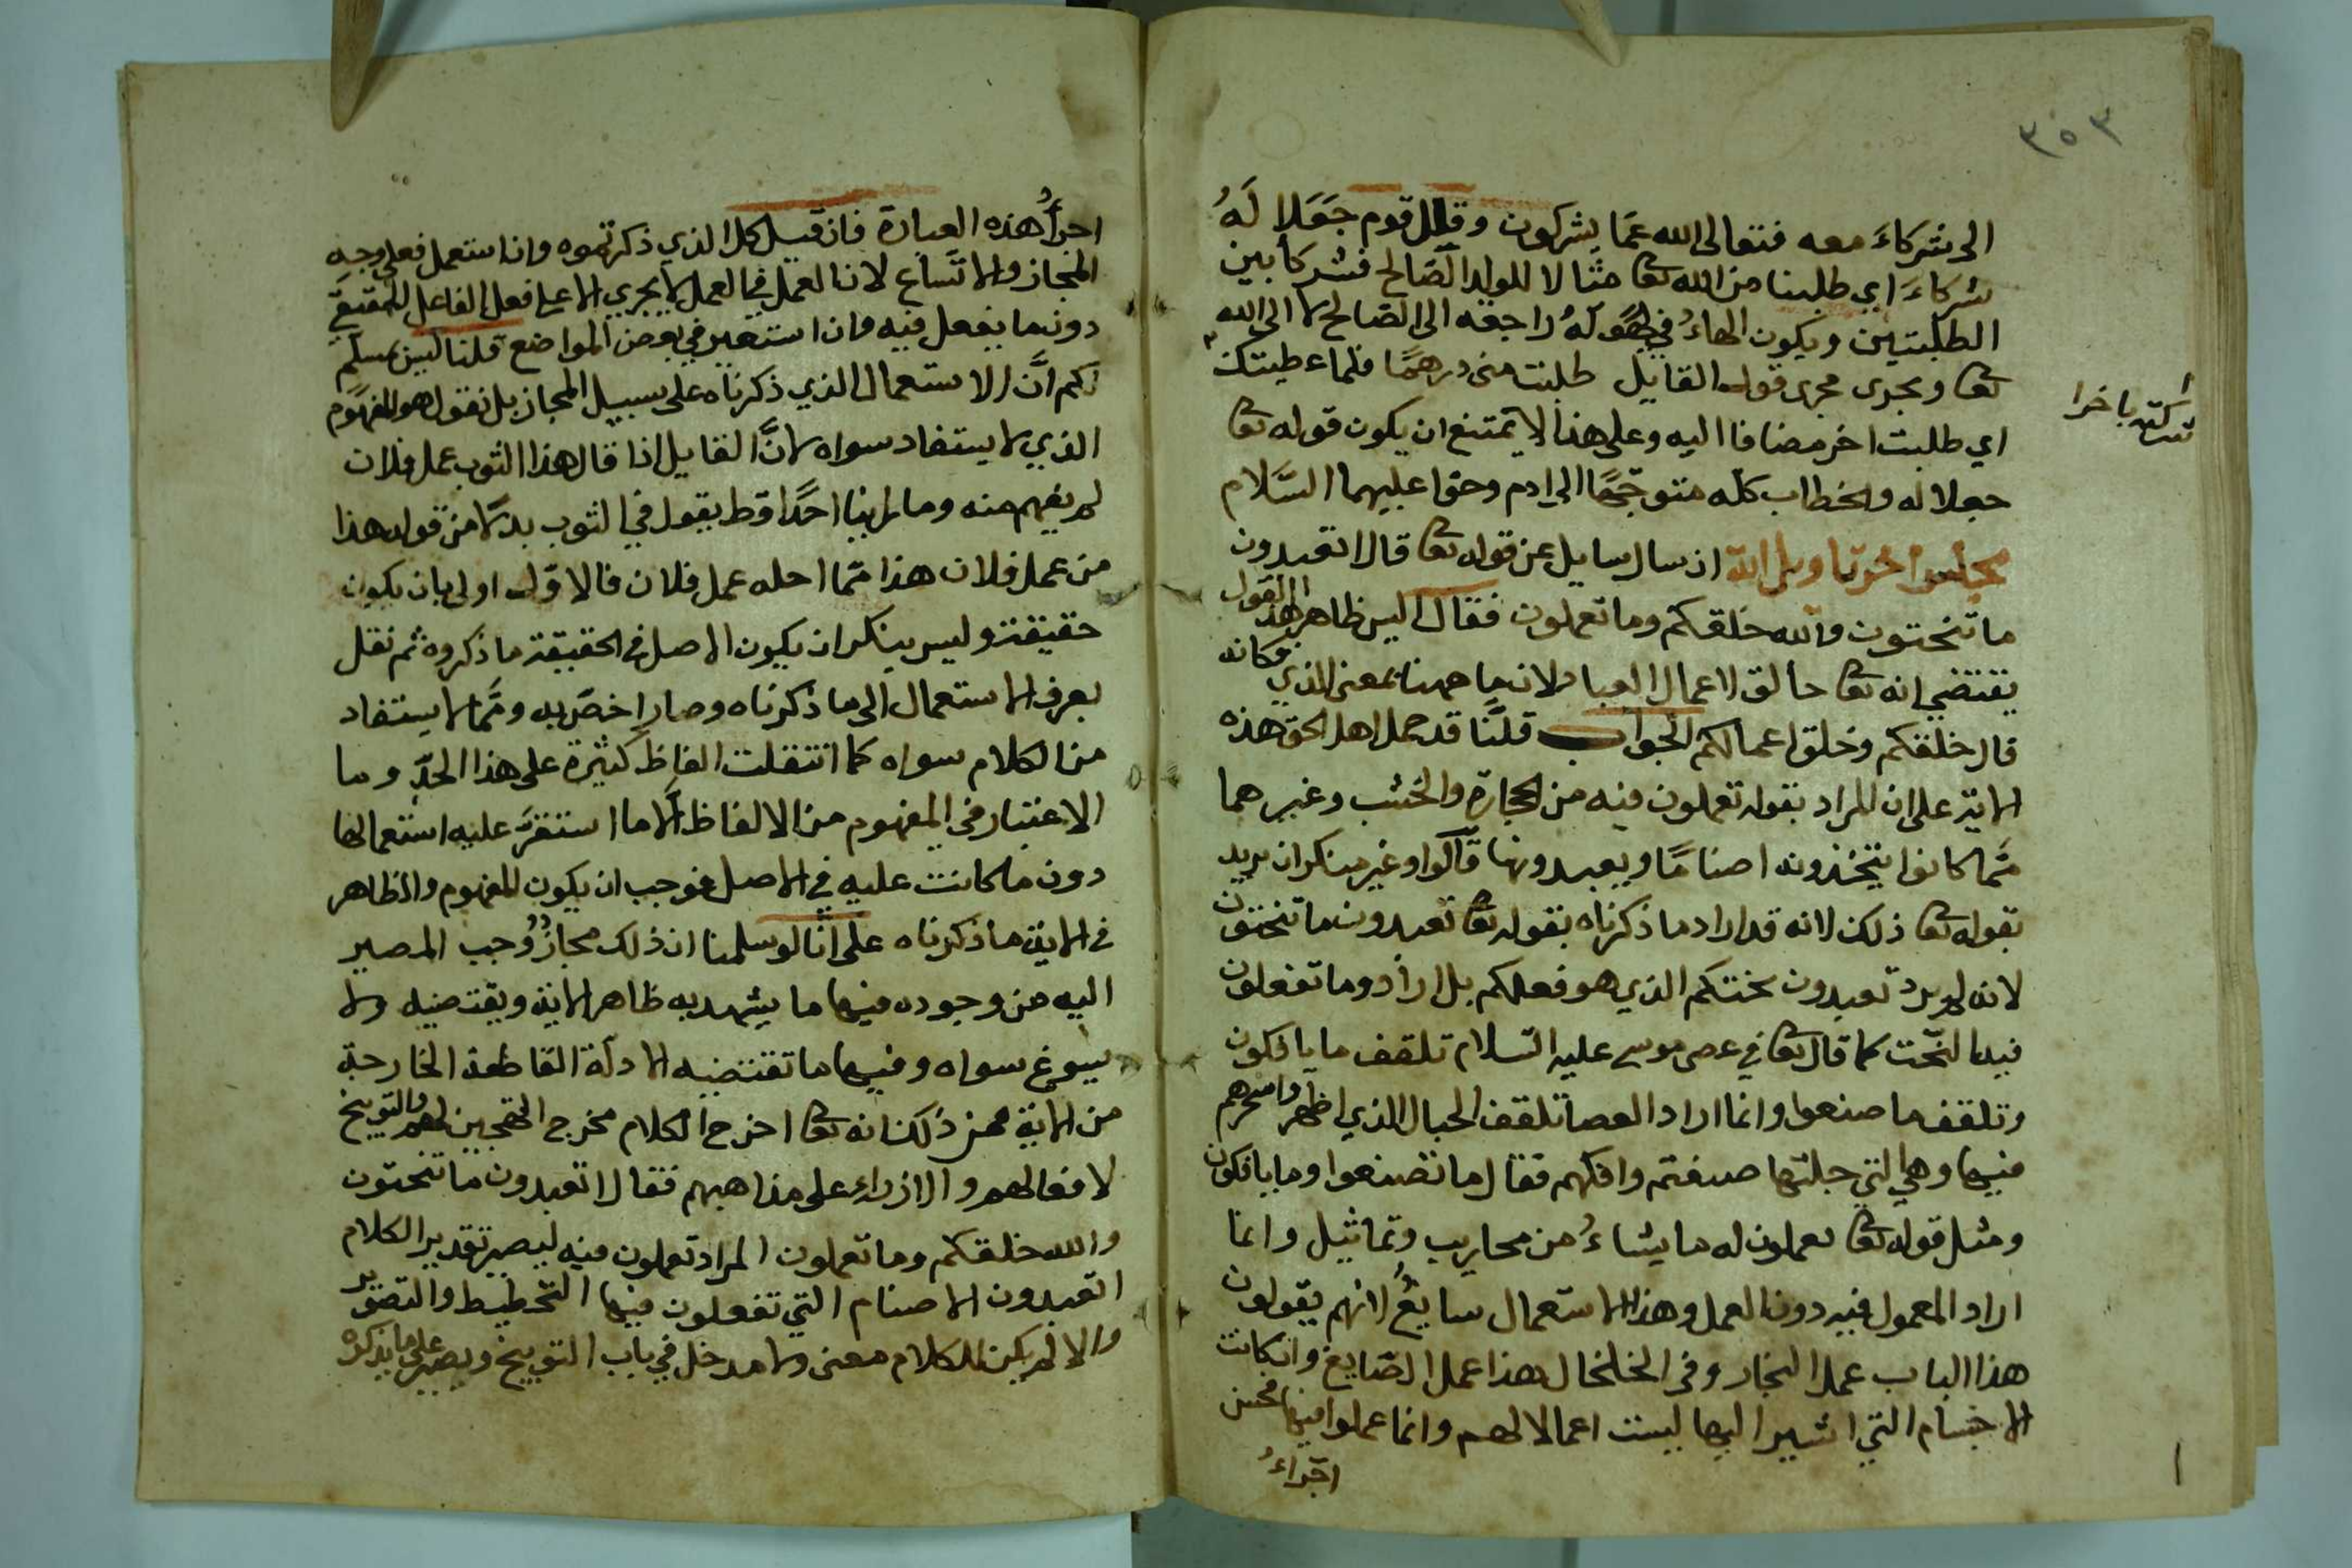 ٣٥٣
الى شركاءَ معه فتعالى الله عمّا يشركون وقال قوم جَعَلا لَهُ
شركاءَ اي طلبنا من الله تعا مثالا للولد الصّالح فشركا بين
الطلبتين ويكون الهاءُ في لهُ راجعه الى الصّالح لا الى الله
تعا ويجرى مجرى قول القايل طلبت منى درهمًا فلما اعطيتك
شركته باخرا
اي طلبت اخر مضافا اليه وعلى هذا لا يمتنع ان يكون قوله تعا
جعلا له والخطاب كلّه متوجّهًا الى ادم وحوا عليهما السَّلام
مجلس اخر تاويل اية ان سال سايل عن قوله تعا قال اتعبدون
ما تنحتون والله خلقكم وما تعملون فقال اليس ظاهر هذا القول
يقتضي انه تعا خالق لاعمال العباد لان ما ههنا بمعنى الذي فكانه
قال خلقكم وخلق اعمالكم الجواب قلنَا قد حمل اهل الحق هذه
الاية على ان المراد بقوله تعملون فيه من الحجارة والخشب وغيرهما
ممّا كانوا يتخذونه اصنامًا ويعبدونها قالوا وغير منكر ان يريد
بقوله تعا ذلك لانه قد اراد ما ذكرناه بقوله تعا تعبدون ما تنحتون
لانه لم يرد تعبدون نحتكم الذي هو فعلكم بل اراد وما تفعلون
فيه النّحت كما قال تعا في عصى موسى عليه السّلام تلقف ما يافكون
وتلقف ما صنعوا وانما اراد العصا تلقف الحبال الذي اظهروا سحرهم
فيها وهي التي حلتها صنعتهم وافكهم فقال ما تصنعوا وما يافكون
ومثل قوله تعا يعملون له ما يشاءُ من محاريب وتماثيل وانما
اراد المعمول فيه دون العمل وهذا الاستعمال سايغٌ لانهم يقولون
هذا الباب عمل النجار وفى الخلخال هذا عمل الصّايغ وان كانت
الاجسام التي اشير اليها ليست اعمالا لهم وانما عملوا فيها فحسن
اجراءُ
اجرأُ هذه العبارة فان قيل كل الذي ذكرتموه وان استعمل فعلى وجه
المجاز والاتّساع لان العمل في العمل لا يجري الا على فعل الفاعل الحقيقي
دون ما يفعل فيه وان استعير في بعض المواضع قلنا ليس نسلم
لكم انَّ الاستعمال الذي ذكرناه على سبيل المجاز بل نقول هو المفهوم
الذي لا يستفاد سواه لانَّ القايل اذا قال هذا الثوب عمل فلان
لم يفهم منه وما راينا احدًا قط يقول في الثوب بدلا من قوله هذا
من عمل فلان هذا ممّا احله عمل فلان فالاوّل اولى بان يكون
حقيقة وليس ينكر ان يكون الاصل في الحقيقة ما ذكروه ثم نقل
بعرف الاستعمال الى ما ذكرناه وصار اخصّ به وممّا لا يستفاد
من الكلام سواه كما انتقلت الفاظ كثيرة على هذا الحدّ وما
الاعتبار في المفهوم من الالفاظ الّا ما استقرّ عليه استعمالها
دون ما كانت عليه في الاصل فوجب ان يكون المفهوم والظاهر
في الاية ما ذكرناه على انّا لو سلمنا ان ذلك مجاز وجب المصير
اليه من وجوده فيها ما يشهد به ظاهر الاية ويقتضيه ولا
يسوغ سواه وفيها ما تقتضيه الادلّة القاطعة الخارجة
من الاية فمن ذلك انه تعا اخرج الكلام مخرج التهجين لهم والتوبيخ
لافعالهم والازراء على مذاهبهم فقال اتعبدون ما تنحتون
والله خلقكم وما تعملون المراد تعملون فيه ليصير تقدير الكلام
اتعبدون الاصنام التي تفعلون فيها التّخطيط والتصوير
والا لم يكن للكلام معنى ولا مدخل في باب التوبيخ ويصير على ما يذكره